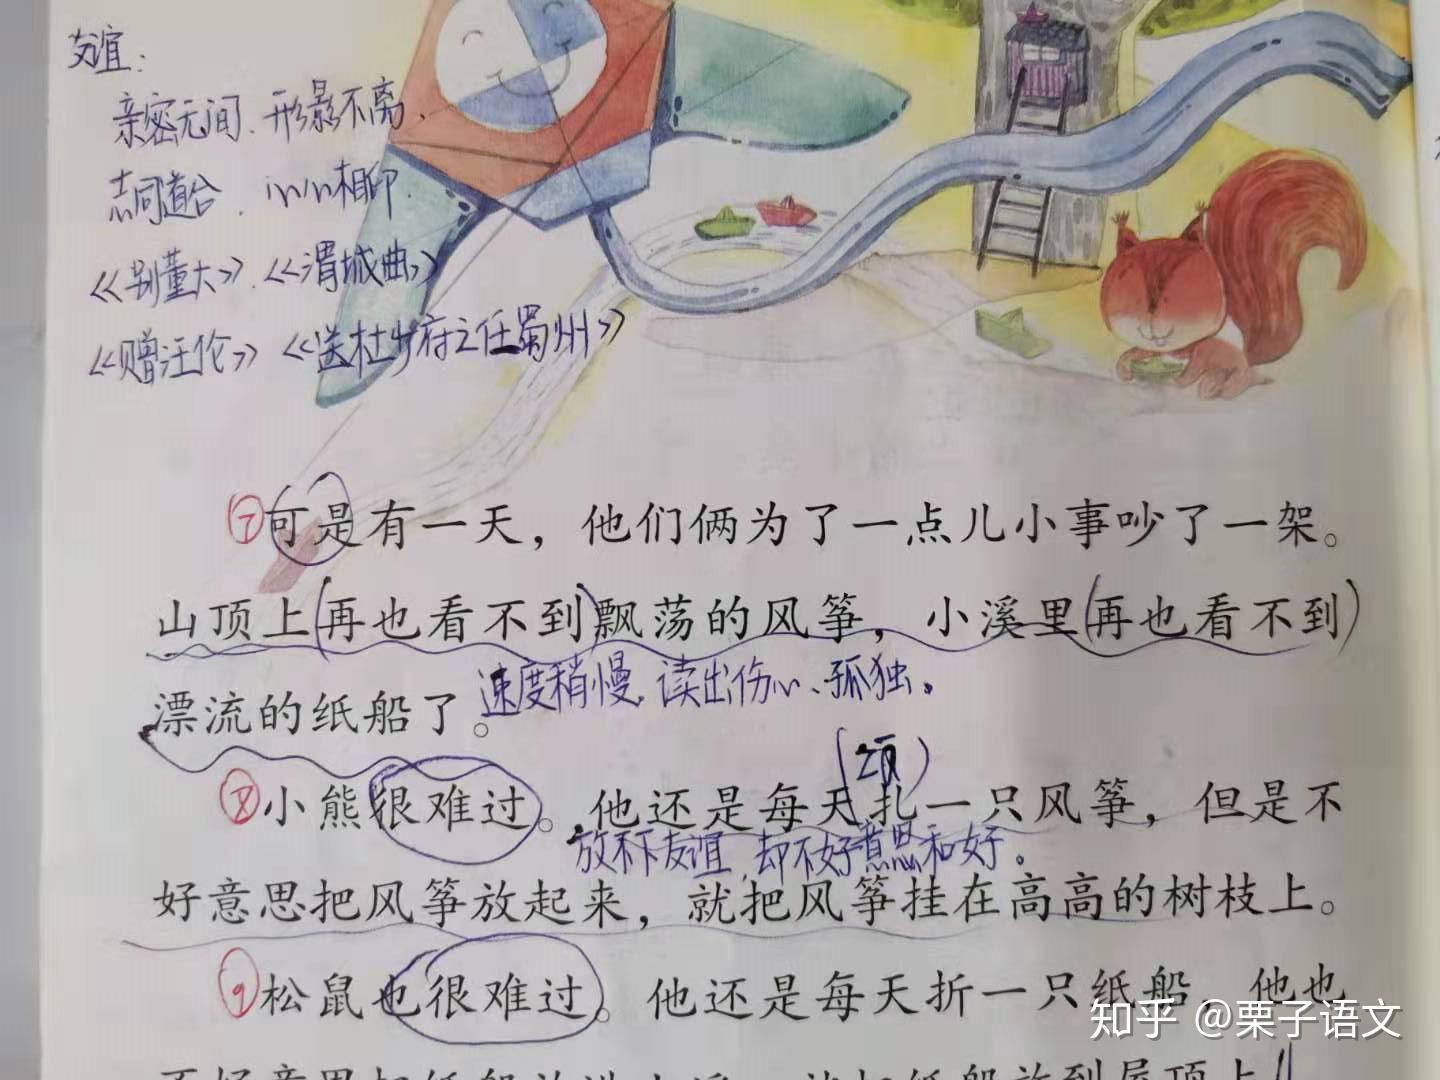 友谊:
亲密无间、形影不离、
志同道合、心心相印.
《别董大》、《渭城曲》
《赠汪伦》《送杜少府之任蜀州》
⑦可是有一天，他们俩为了一点儿小事吵了一架。
山顶上(再也看不到)飘荡的风筝，小溪里(再也看不到)
漂流的纸船了。
速度稍慢，读出伤心、孤独。
⑧小熊很难过。他还是每天扎一只风筝，但是不
放不下友谊，却不好意思和好。
好意思把风筝放起来，就把风筝挂在高高的树枝上。
⑨松鼠也很难过。他还是每天折一只纸船，他也
知乎 @栗子语文